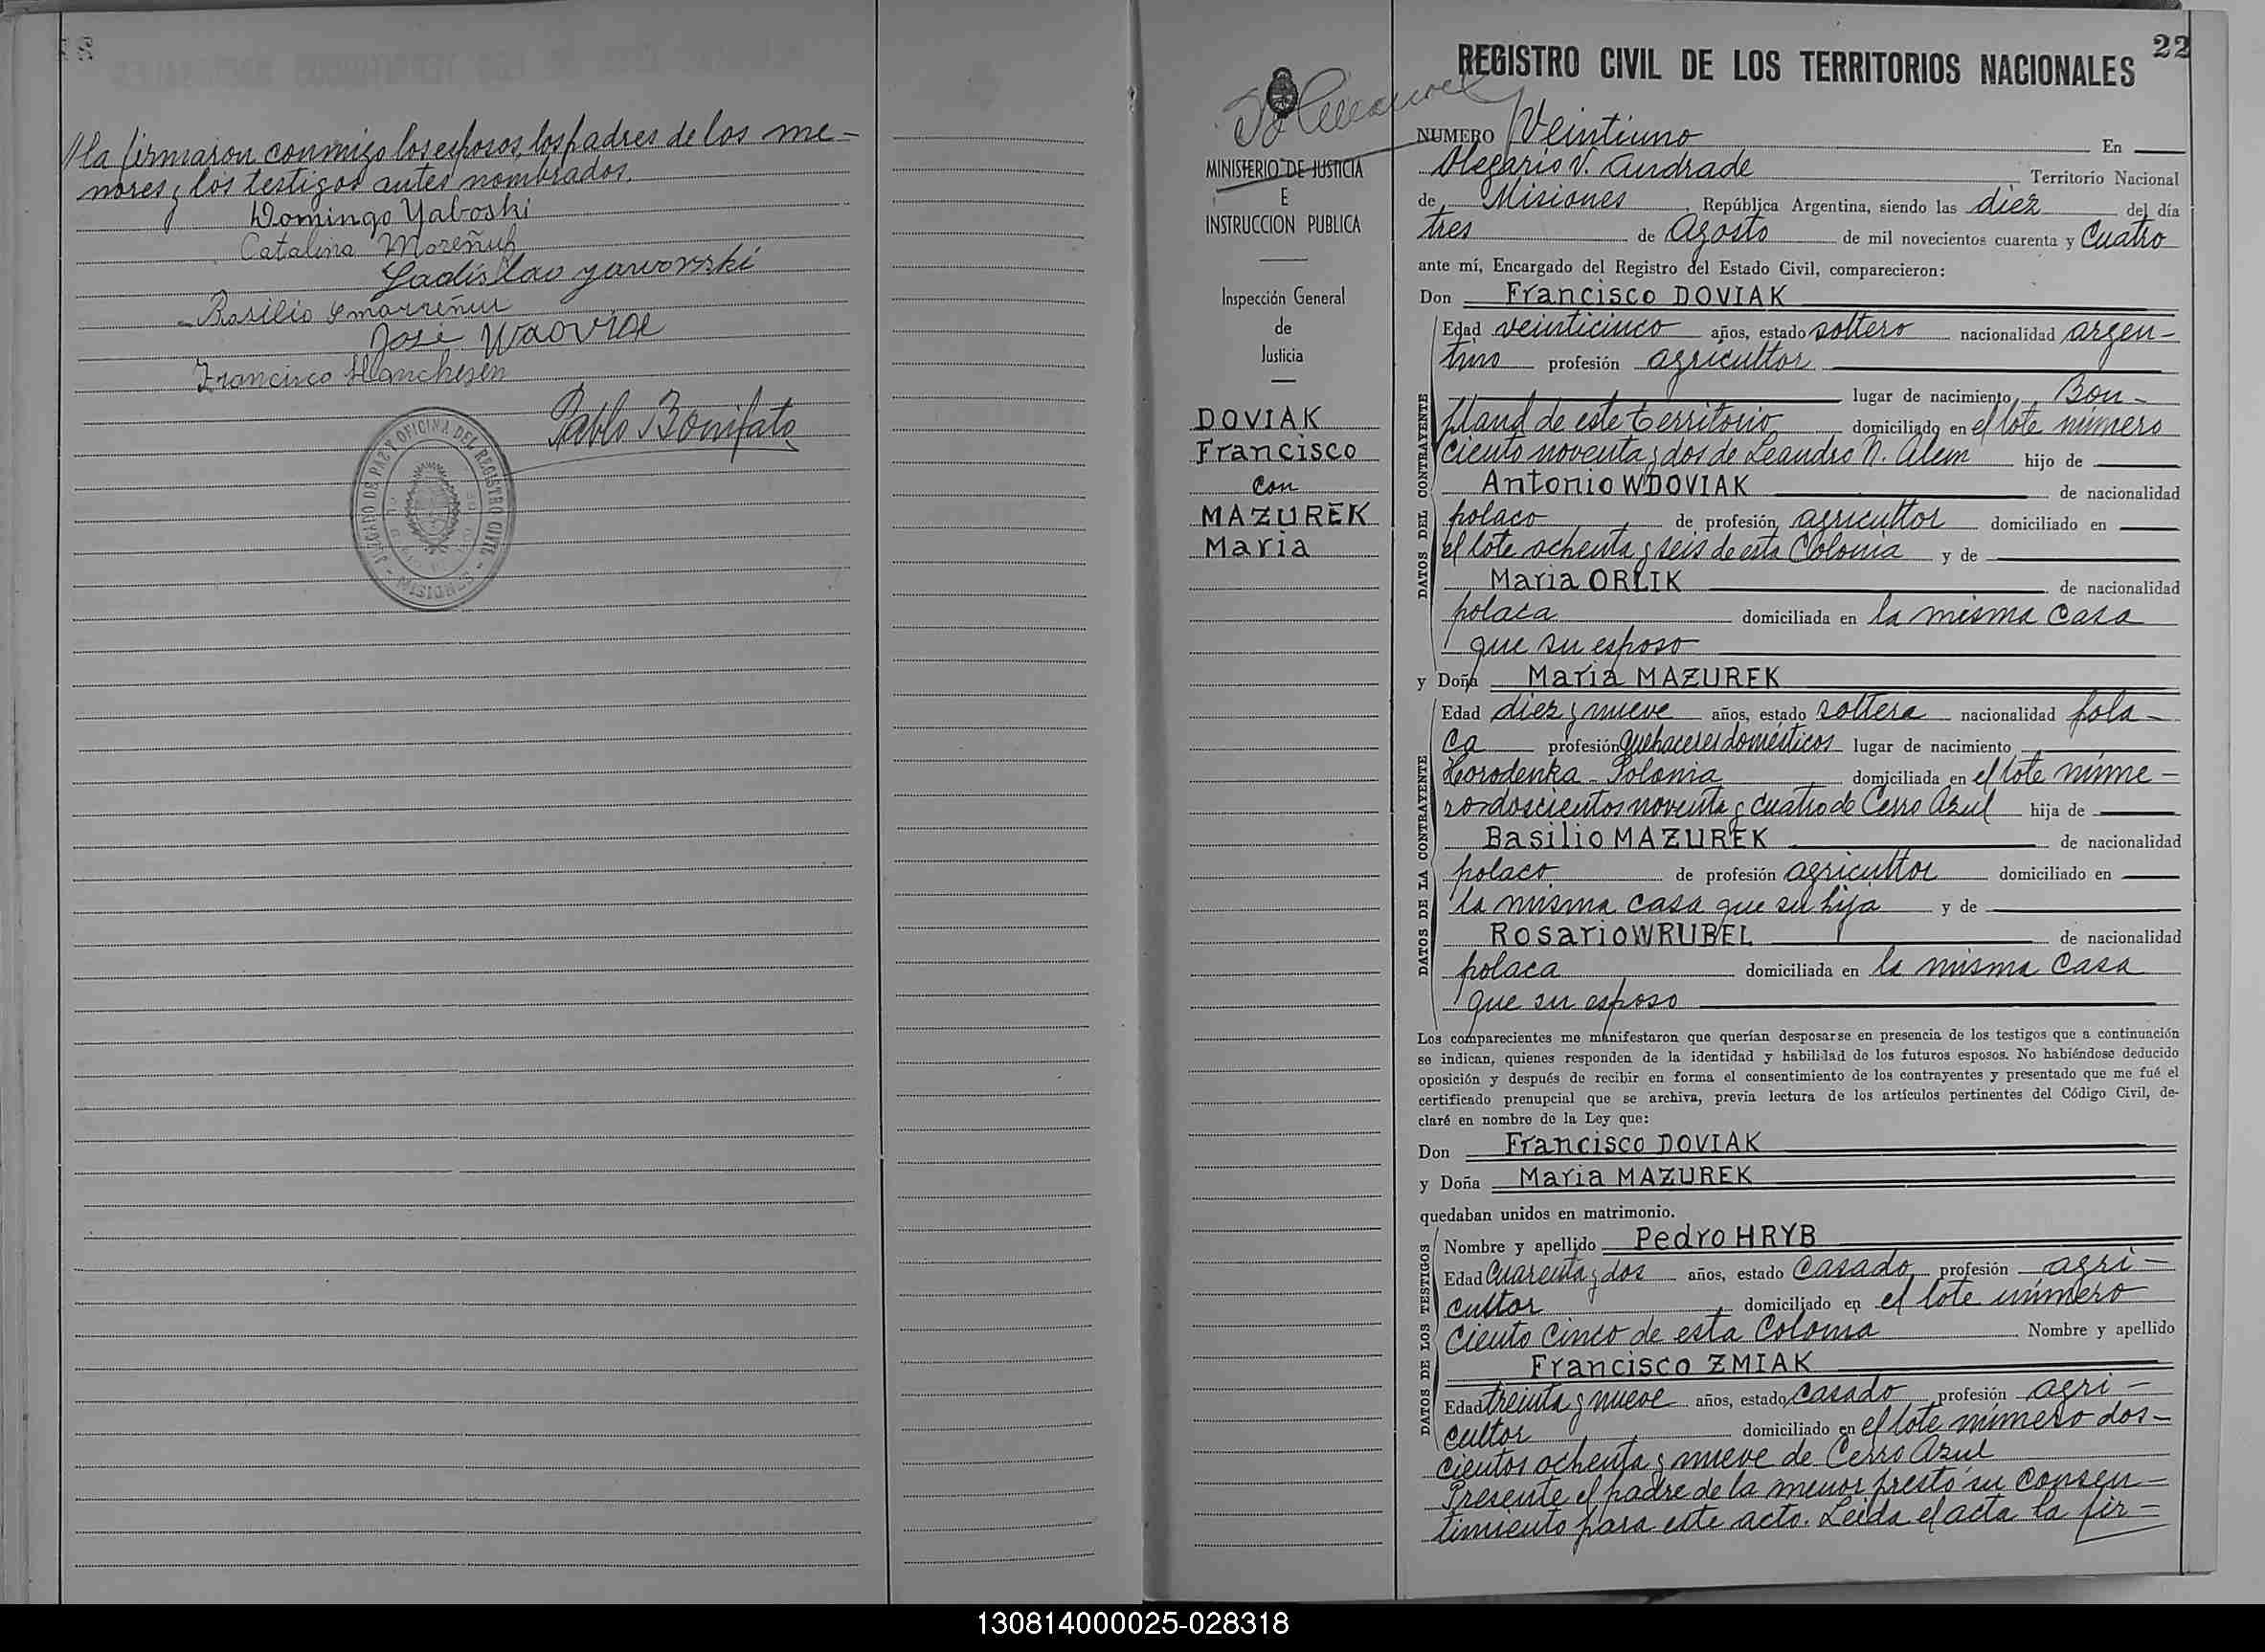 //la firmaron conmigo los esposos, los padres de los me-
nores y los testigos antes nombrados.
Domingo Yaboski
Catalina
Ladislao Yavorski
Basilio
José
Francisco
Pablo Bonifato
JUZGADO DE PAZ Y OFICINA DEL REGISTRO CIVIL
- MISIONES -
22
REGISTRO CIVIL DE LOS TERRITORIOS NACIONALES
MINISTERIO DE JUSTICIA
E
INSTRUCCION PUBLICA
Inspección General
de
Justicia
DOVIAK
Francisco
con
MAZUREK
Maria
NUMERO Veintiuno En
Olegario V. Andrade Territorio Nacional
de Misiones, República Argentina, siendo las diez del día
tres de Agosto de mil novecientos cuarenta y Cuatro
ante mí, Encargado del Registro del Estado Civil, comparecieron:
Don Francisco DOVIAK
DATOS DEL CONTRAYENTE
Edad veinticinco años, estado soltero nacionalidad argen-
tino profesión agricultor
lugar de nacimiento Bon-
pland de este territorio domiciliado en el lote número
ciento noventa y dos de Leandro N. Alem hijo de
Antonio WDOVIAK de nacionalidad
polaco de profesión agricultor domiciliado en
el lote ochenta y seis de esta Colonia y de
Maria ORLIK de nacionalidad
polaca domiciliada en la misma casa
que su esposo
y Doña Maria MAZUREK
DATOS DE LA CONTRAYENTE
Edad diez y nueve años, estado soltera nacionalidad pola-
ca profesión quehaceres domésticos lugar de nacimiento
Horodenka - Polonia domiciliada en el lote núme-
ro doscientos noventa y cuatro de Cerro Azul hija de
Basilio MAZUREK de nacionalidad
polaco de profesión agricultor domiciliado en
la misma casa que su hija y de
Rosario WRUBEL de nacionalidad
polaca domiciliada en la misma casa
que su esposo
Los comparecientes me manifestaron que querían desposarse en presencia de los testigos que a continuación
se indican, quienes responden de la identidad y habilidad de los futuros esposos. No habiéndose deducido
oposición y después de recibir en forma el consentimiento de los contrayentes y presentado que me fué el
certificado prenupcial que se archiva, previa lectura de los artículos pertinentes del Código Civil, de-
claré en nombre de la Ley que:
Don Francisco DOVIAK
y Doña Maria MAZUREK
quedaban unidos en matrimonio.
DATOS DE LOS TESTIGOS
Nombre y apellido Pedro HRYB
Edad Cuarenta y dos años, estado casado profesión agri-
cultor domiciliado en el lote número
ciento cinco de esta Colonia Nombre y apellido
Francisco ZMIAK
Edad treinta y nueve años, estado casado profesión agri-
cultor domiciliado en el lote número dos-
cientos ochenta y nueve de Cerro Azul
Presente el padre de la menor prestó su consen-
timiento para este acto. Leida el acta la fir=
130814000025-028318